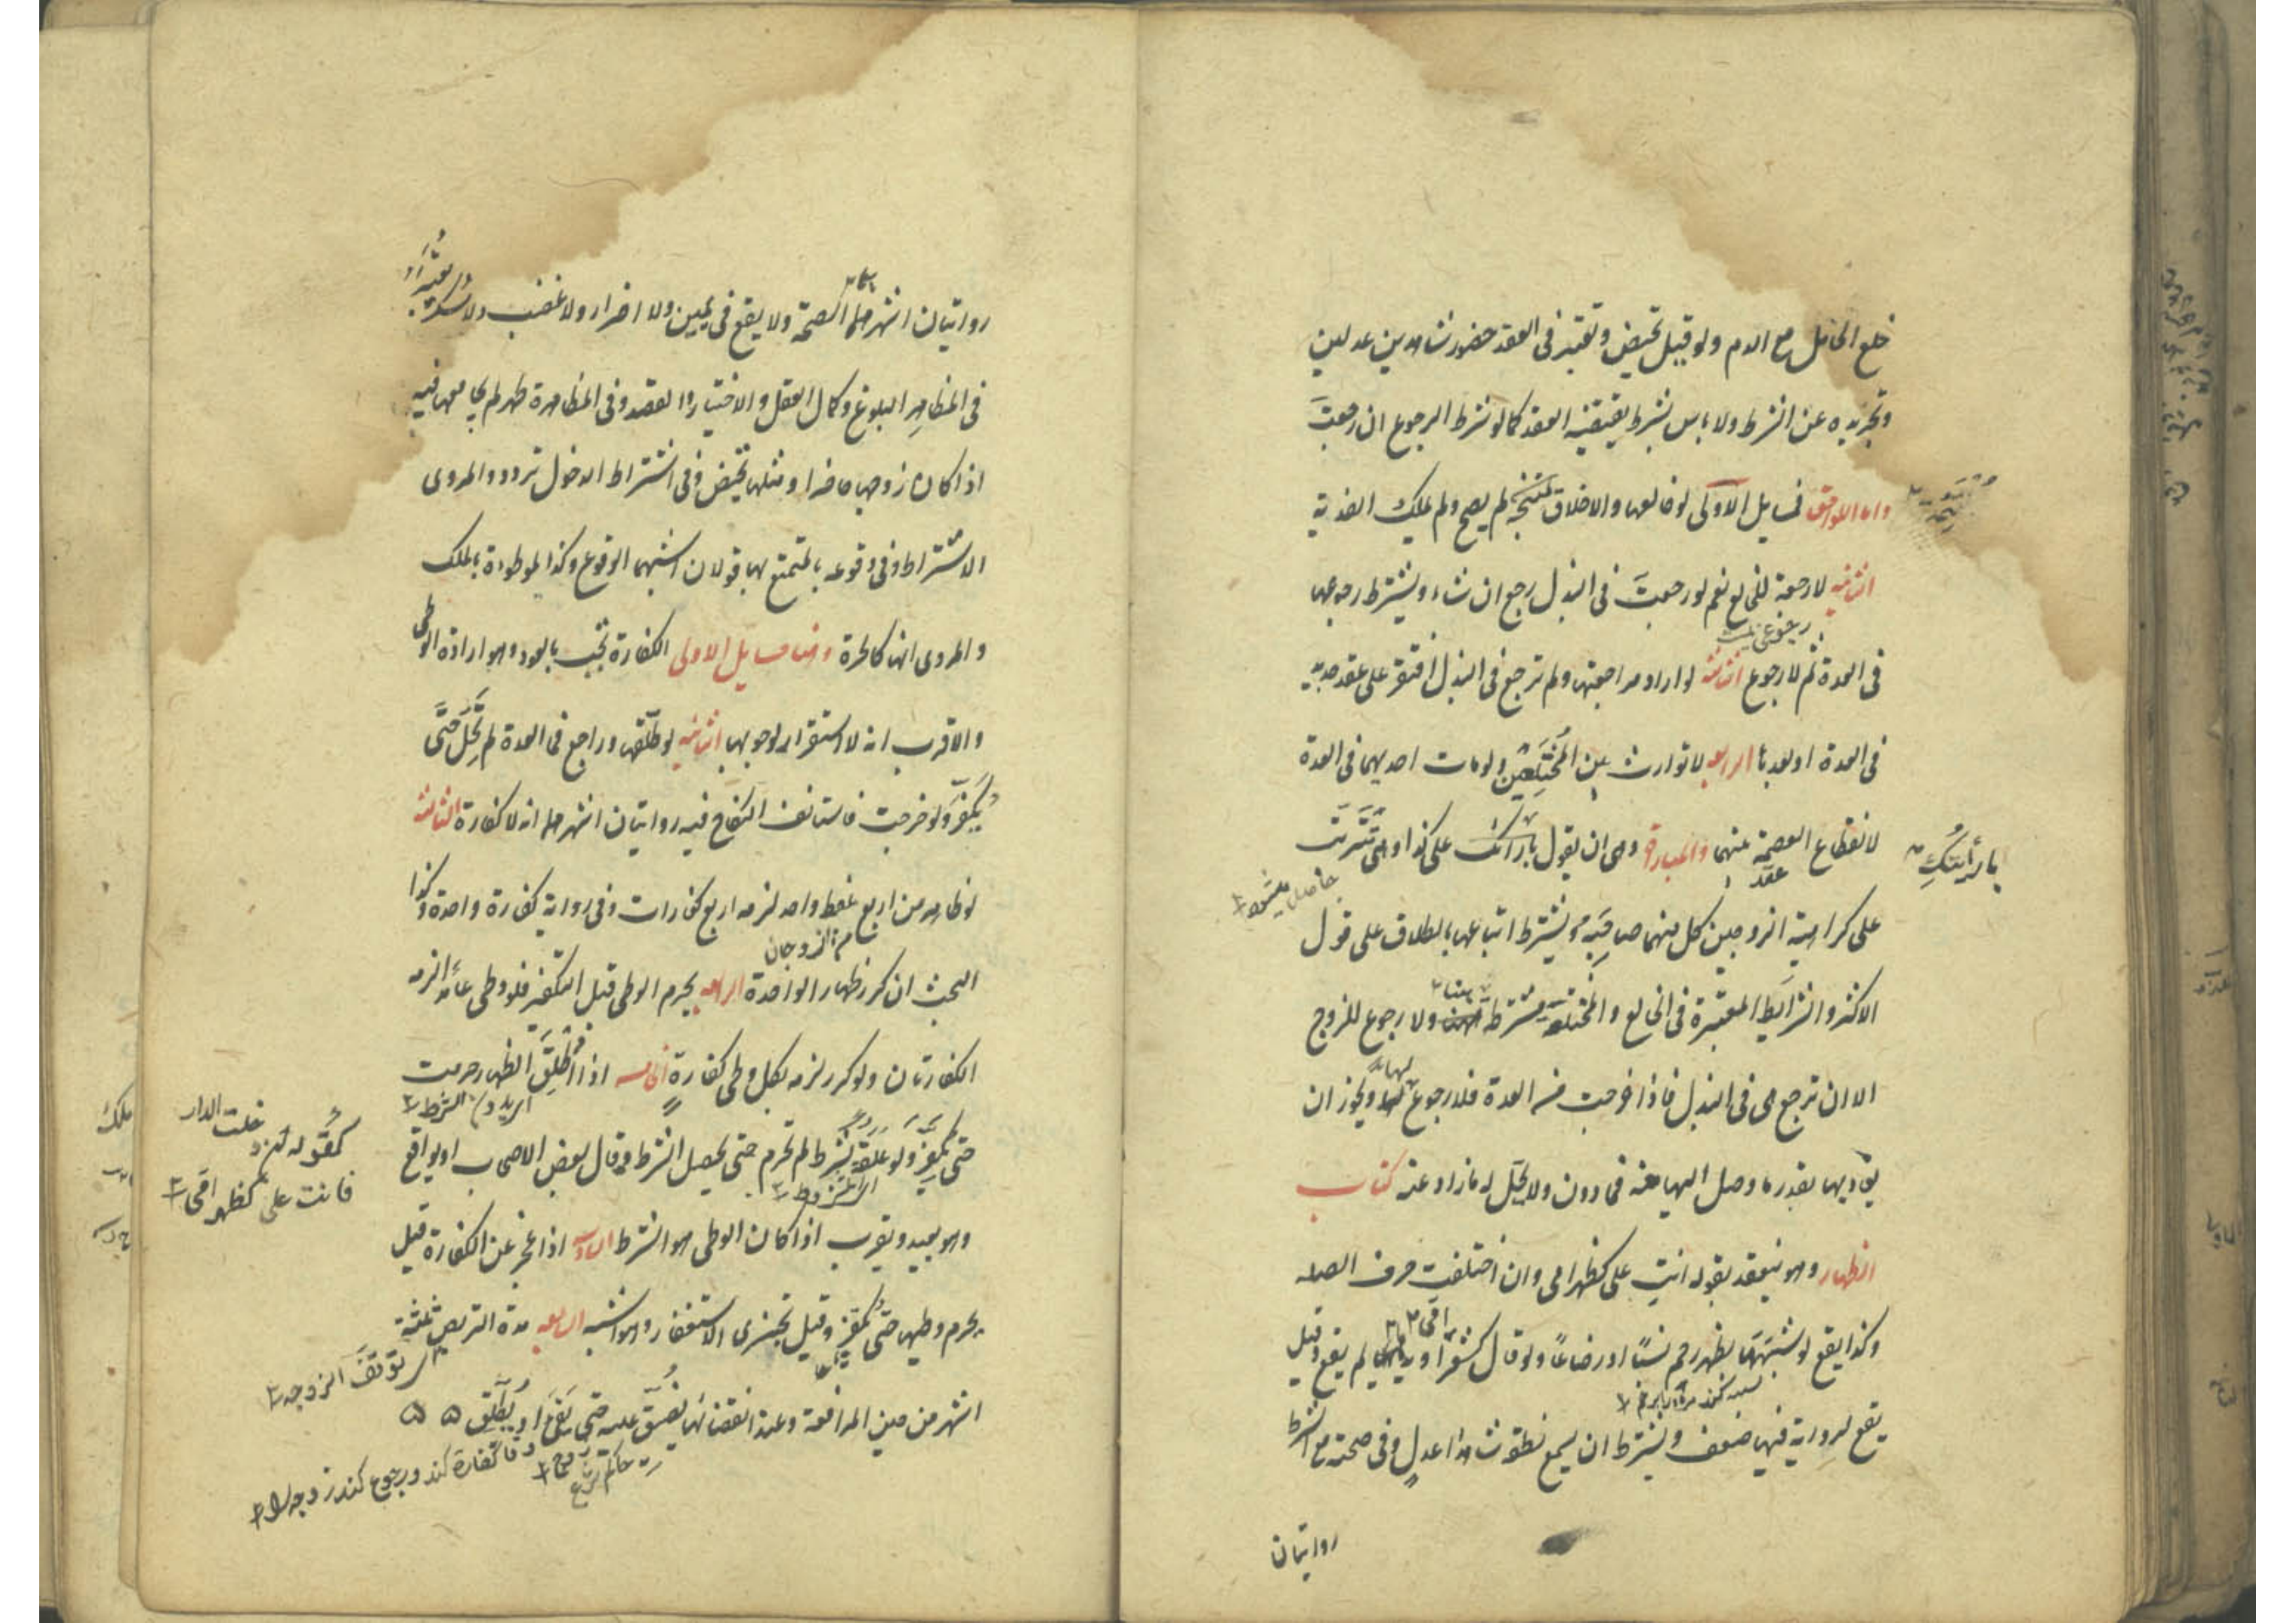 خلع الحامل مع الدم ولو قيل تحيض وتعتبر في العقد حضور شاهدين عدلين
وتجريده عن الشرط ولا باس بشرط يقتضيه العقد كما لو شرط الرجوع ان رجعت
واما اللواحق فمسايل الاولى لو خالعها والاخلاق ملتئمة لم يصح ولم يملك الفدية
الثانية لا رجعة للخالع نعم لو رجعت في البذل رجع ان شاء ويشترط رجوعها
في العدة ثم لا رجوع الثالثة لو اراد مراجعتها ولم ترجع في البذل افتقر على عقد جديد
في العدة او بعدها الرابعة لا توارث بين المختلعين ولو مات احديهما في العدة
لانقطاع العصمة بينهما والمبارة وهى ان يقول بارأتك على كذا وهى تترتب
بارأيتك
عقد
على كراهية الزوجين كل منهما صاحبه ويشترط اتباعها بالطلاق على قول
الاكثر والشرائط المعتبرة في الخالع والمختلعة مشترطة هنا ولا رجوع للزوج
الا ان ترجع هى في البذل فاذا خرجت من العدة فلا رجوع لها ويجوز ان
يفاديها بقدر ما وصل اليها منه فما دون ولا يحل له ما زاد عنه كتاب
الظهار وهو ينعقد بقوله انت على كظهر امى وان اختلفت حرف الصله
وكذا يقع لو شبهها بظهر رحم نسبا او رضاعا ولو قال كشعر امى او يدها لم يقع وقيل
يقع لرواية فيها ضعف ويشترط ان يسمع نطقه شاهدا عدل وفي صحته مع الشرط
روايتان
روايتان اشهرهما الصحة ولا يقع في يمين ولا اضرار ولا غضب ولا سكر ويعتبر
في المظاهر البلوغ وكمال العقل والاختيار والقصد وفي المظاهرة طهر لم يجامعها فيه
اذا كان زوجها حاضرا ومثلها تحيض وفي اشتراط الدخول تردد والمروى
الاشتراط وفي وقوعه بالمتمتع بها قولان اشبههما الوقوع وكذا الموطوءة بالملك
والمروى انها كالحرة وهنا مسايل الاولى الكفارة تجب بالعود وهو ارادة الوطى
والاقرب انه لا استقرار لوجوبها الثانية لو طلقها وراجع في العدة لم تحل حتى
يكفر ولو خرجت فاستانف النكاح فيه روايتان اشهرهما انه لا كفارة الثالثة
لو ظاهر من اربع بلفظ واحد لزمه اربع كفارات وفي رواية كفارة واحدة وكذا
البحث ان كرر ظهار الواحدة الرابعة يحرم الوطى قبل التكفير فلو وطى عامدا لزمه
الكفارتان ولو كرر لزمه بكل وطى كفارة الخامسة اذا اطلق الظهار حرمت
حتى يكفر ولو علقه بشرط لم تحرم حتى يحصل الشرط وقال بعض الاصحاب او يواقع
كقوله ان دخلت الدار
فانت على كظهر امى ١٢
وهو بعيد ويقرب اذا كان الوطى هو الشرط السادسة اذا عجز عن الكفارة قيل
يحرم وطيها حتى يكفر وقيل تجزى الاستغفار وهو اشبه السابعة مدة التربص ثلثة
اشهر من حين المرافعة وعند انقضائها يضيق عليه حتى يفى او يطلق
حاكم شرع
تا كفارة كند و رجوع كند زوجه را ١٢